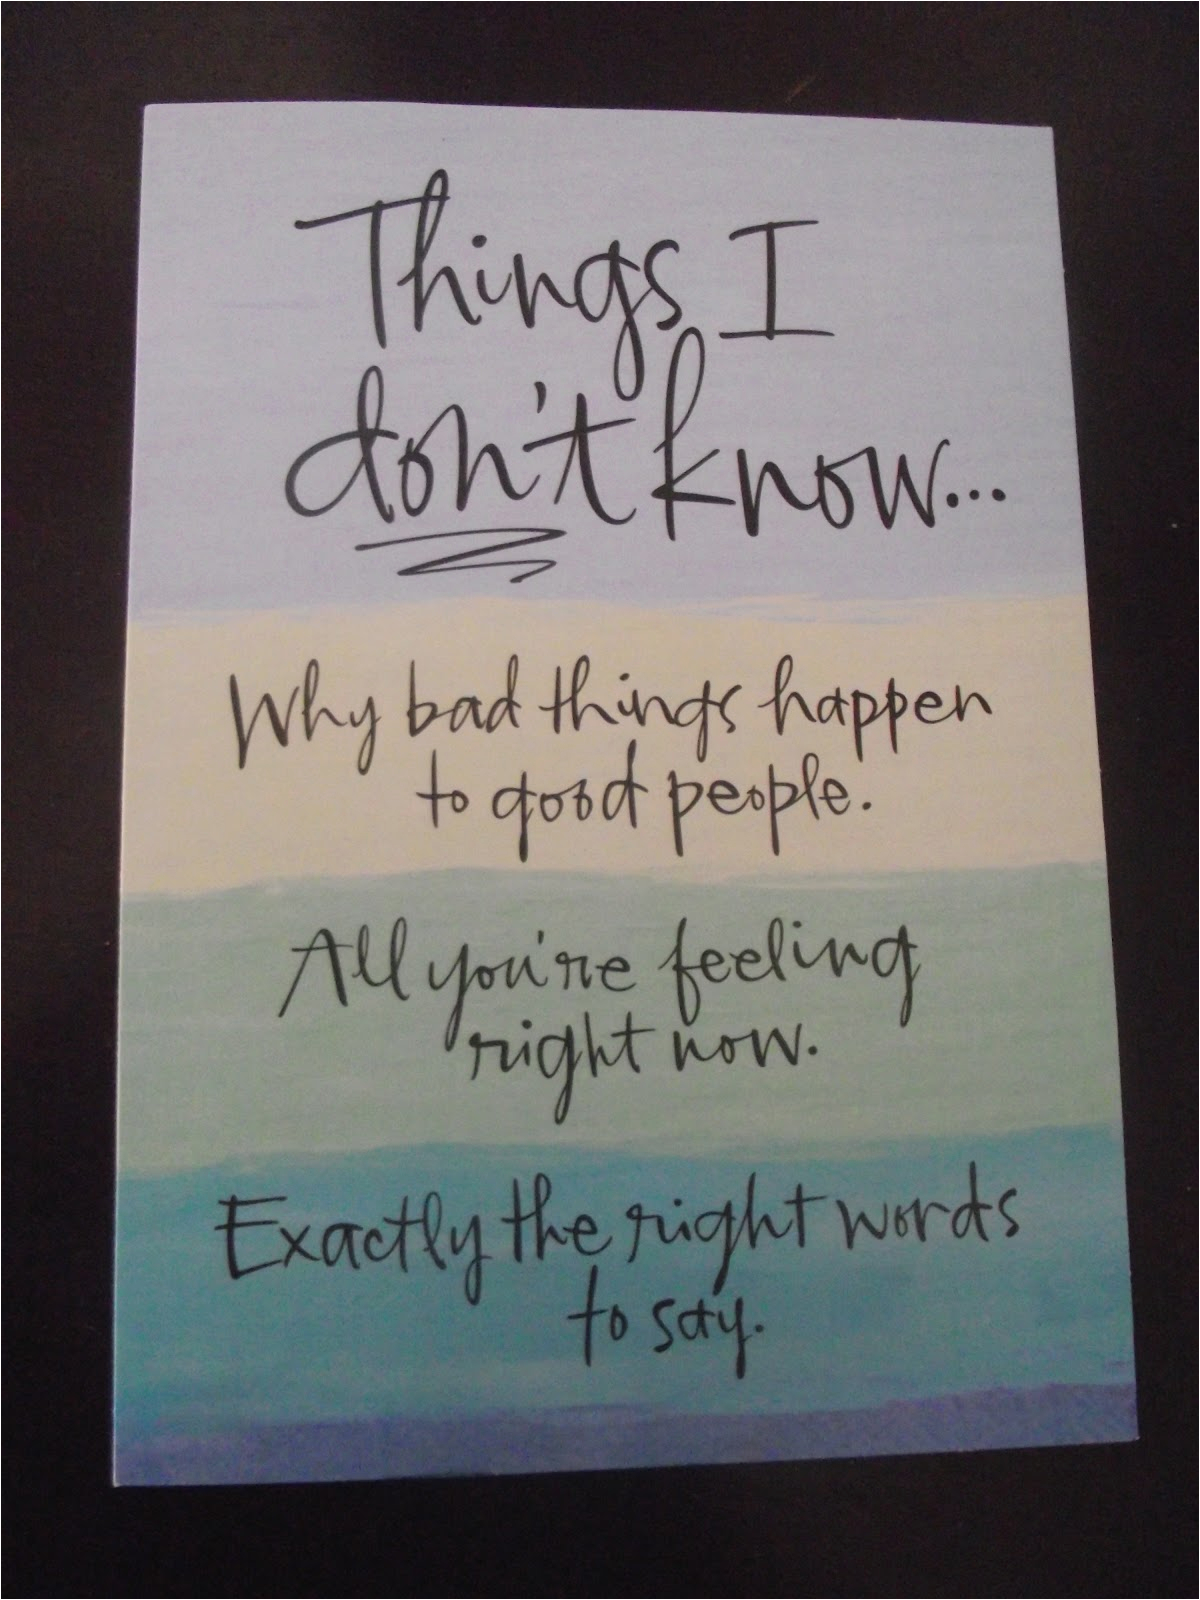 Things I
don't know...
Why bad things happen
to good people.
All you're feeling
right now.
Exactly the right words
to say.